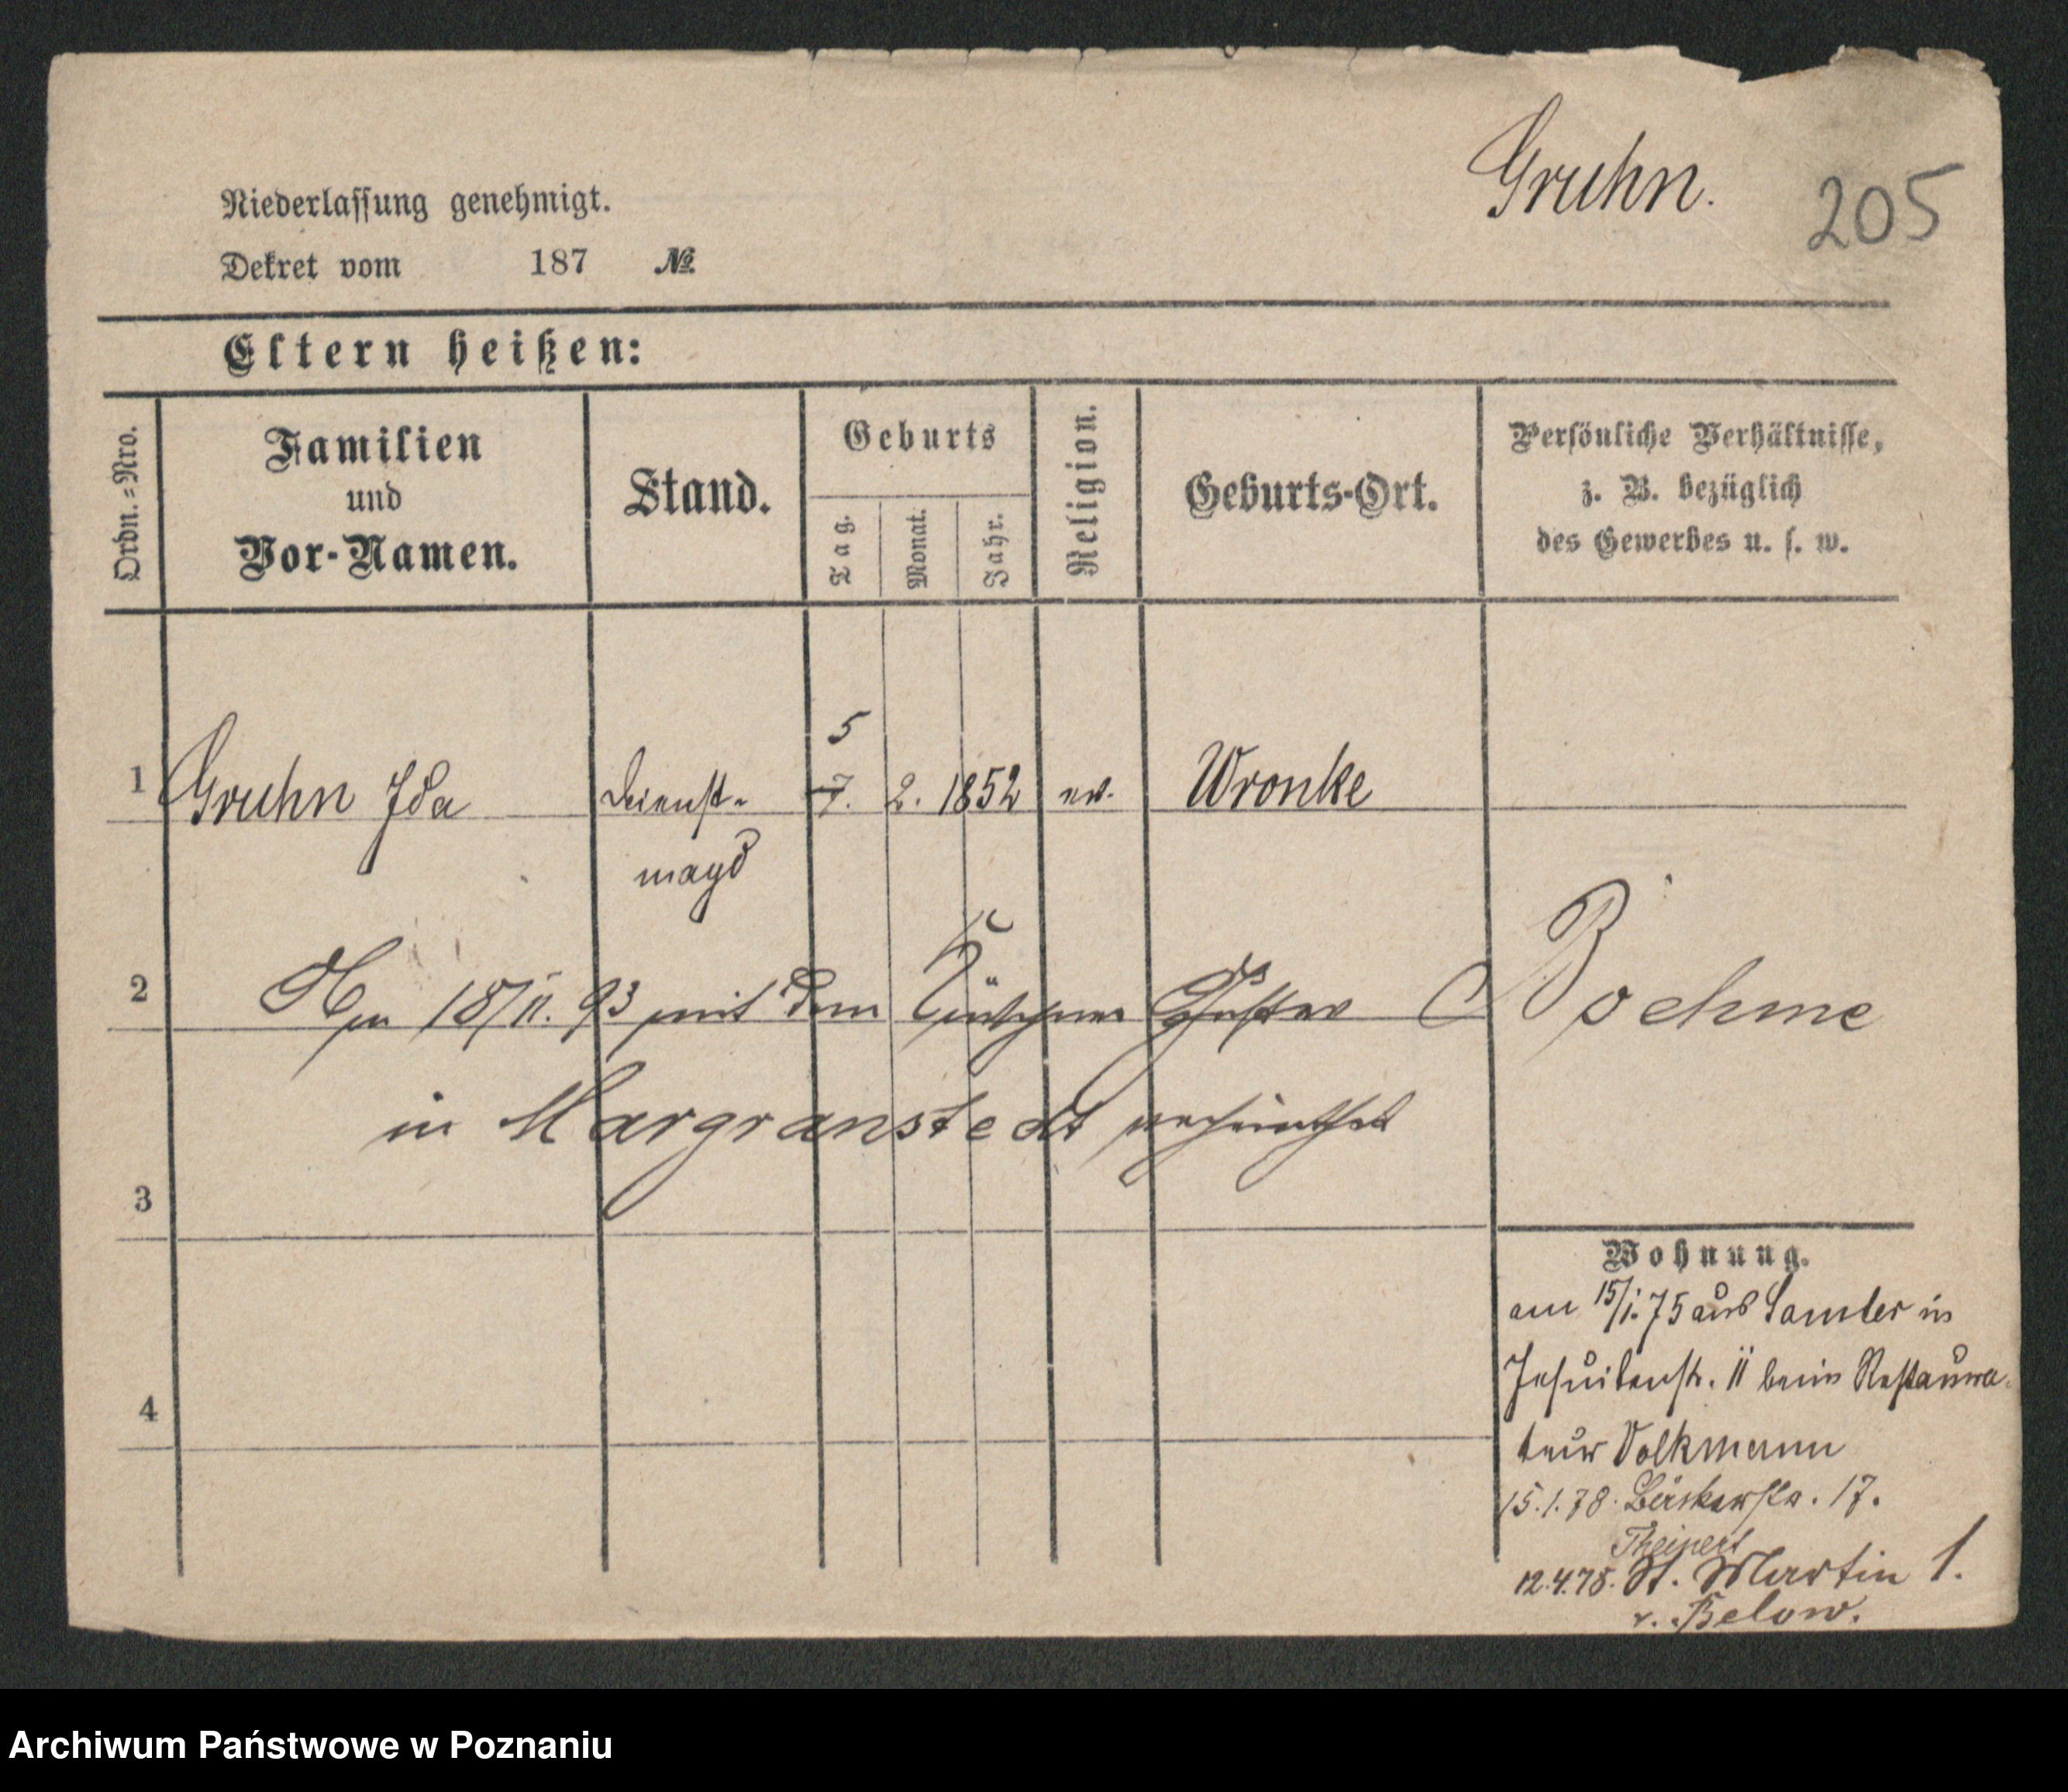 Gruhn.
205
Niederlassung genehmigt.
Dekret vom 187 №
Eltern heißen:
Ordn.=Nro.
Familien
und
Vor-Namen.
Stand.
Geburts
Tag.
Monat.
Jahr.
Religion.
Geburts-Ort.
Persönliche Verhältnisse,
z. B. bezüglich
des Gewerbes u. s. w.
5
1 Gruhn Ida Dienst- 7. 2. 1852 ev. Wronke
magd
2 18/11. 93 mit dem Gustav Boehme
in Margranstedt verheirathet
3
4
Wohnung.
am 15/1. 75 aus Samter in
Jesuitenstr. 11 beim Restaura-
teur Volkmann
15.1.78. 17.
Theinert
12.4.78. St. Martin 1.
v. Below.
Archiwum Państwowe w Poznaniu